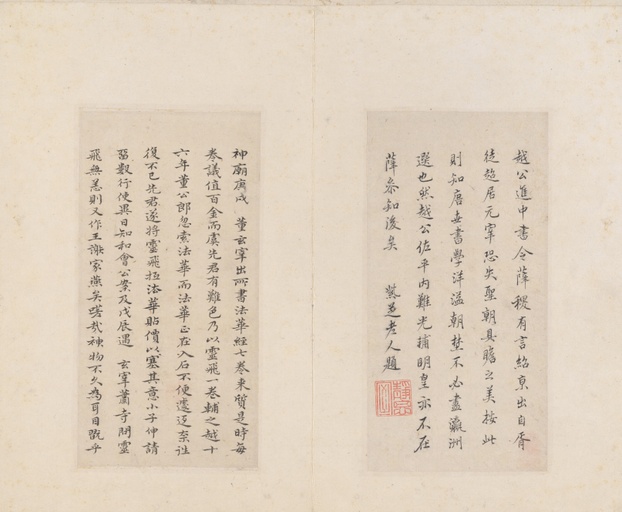 越公進中書令薛稷有言紹京出自胥
徒超居元宰恐失聖朝具瞻之美按此
則知唐世書學洋溢朝埜不必盡瀛洲
選也然越公佐平內難光輔明皇亦不在
薛參知後矣 紫芝老人題
神廟庚戌 董玄宰出所書法華經七卷來質是時每
卷議值百金而虞先君有難色乃以靈飛一卷輔之越十
六年董公郎忽索法華而法華正在入石不便遽返索往
復不已先君遂將靈飛抵法華貼價以塞其意小子仲請
留數行使異日知和會公案及戊辰遇 玄宰蕭寺問靈
飛無恙則又作王謝家燕矣嗟哉神物不久為耳目翫乎